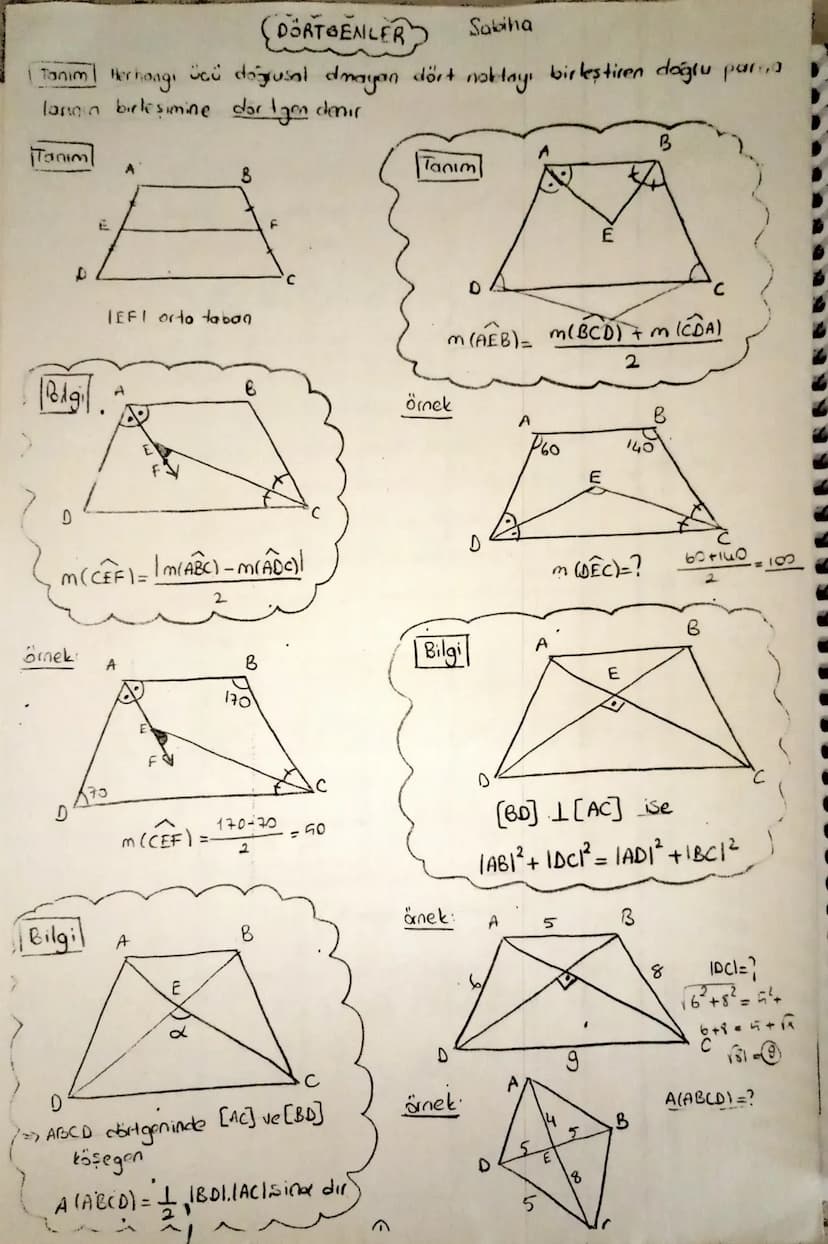 DÖRTGENLER
Sabiha
Tanım Herhangi üçü doğrusal olmayan dört noktayı birleştiren doğru parça
larının birleşimine dörtgen denir
Tanım
A B
E F
D C
|EF| orta taban
Tanım
A B
E
D C
m(AEB)= m(BCD) + m(CDA)
2
Bilgi
A B
E
F
D C
m(CEF)= |m(ABC) - m(ADC)|
2
örnek
A B
60 140
E
D C
m(DEC)=? 60+140 = 100
2
örnek:
A B
170
E
F
70
D C
m(CEF) = 170-70 = 50
2
Bilgi
A B
E
D C
[BD] ⊥ [AC] ise
|AB|² + |DC|² = |AD|² + |BC|²
Bilgi
A B
E
α
D C
=> ABCD dörtgeninde [AC] ve [BD]
köşegen
A(ABCD) = 1 |BD|.|AC| sinα dır
2
örnek:
A 5 B
6 8
D C
9
|DC|=?
örnek:
A
4 5 B
D 5 E
8
5
A(ABCD)=?